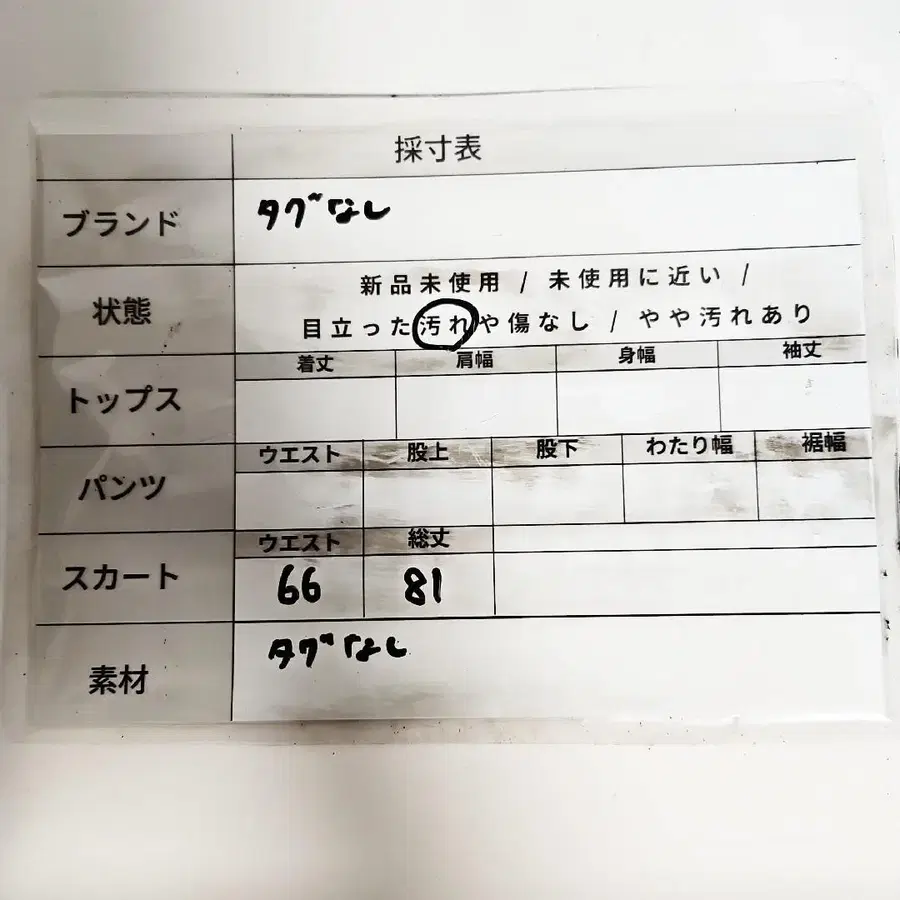 採寸表
ブランド タグなし
状態 新品未使用 / 未使用に近い /
目立った汚れや傷なし / やや汚れあり
トップス 着丈 肩幅 身幅 袖丈
パンツ ウエスト 股上 股下 わたり幅 裾幅
スカート ウエスト 総丈
66 81
素材 タグなし